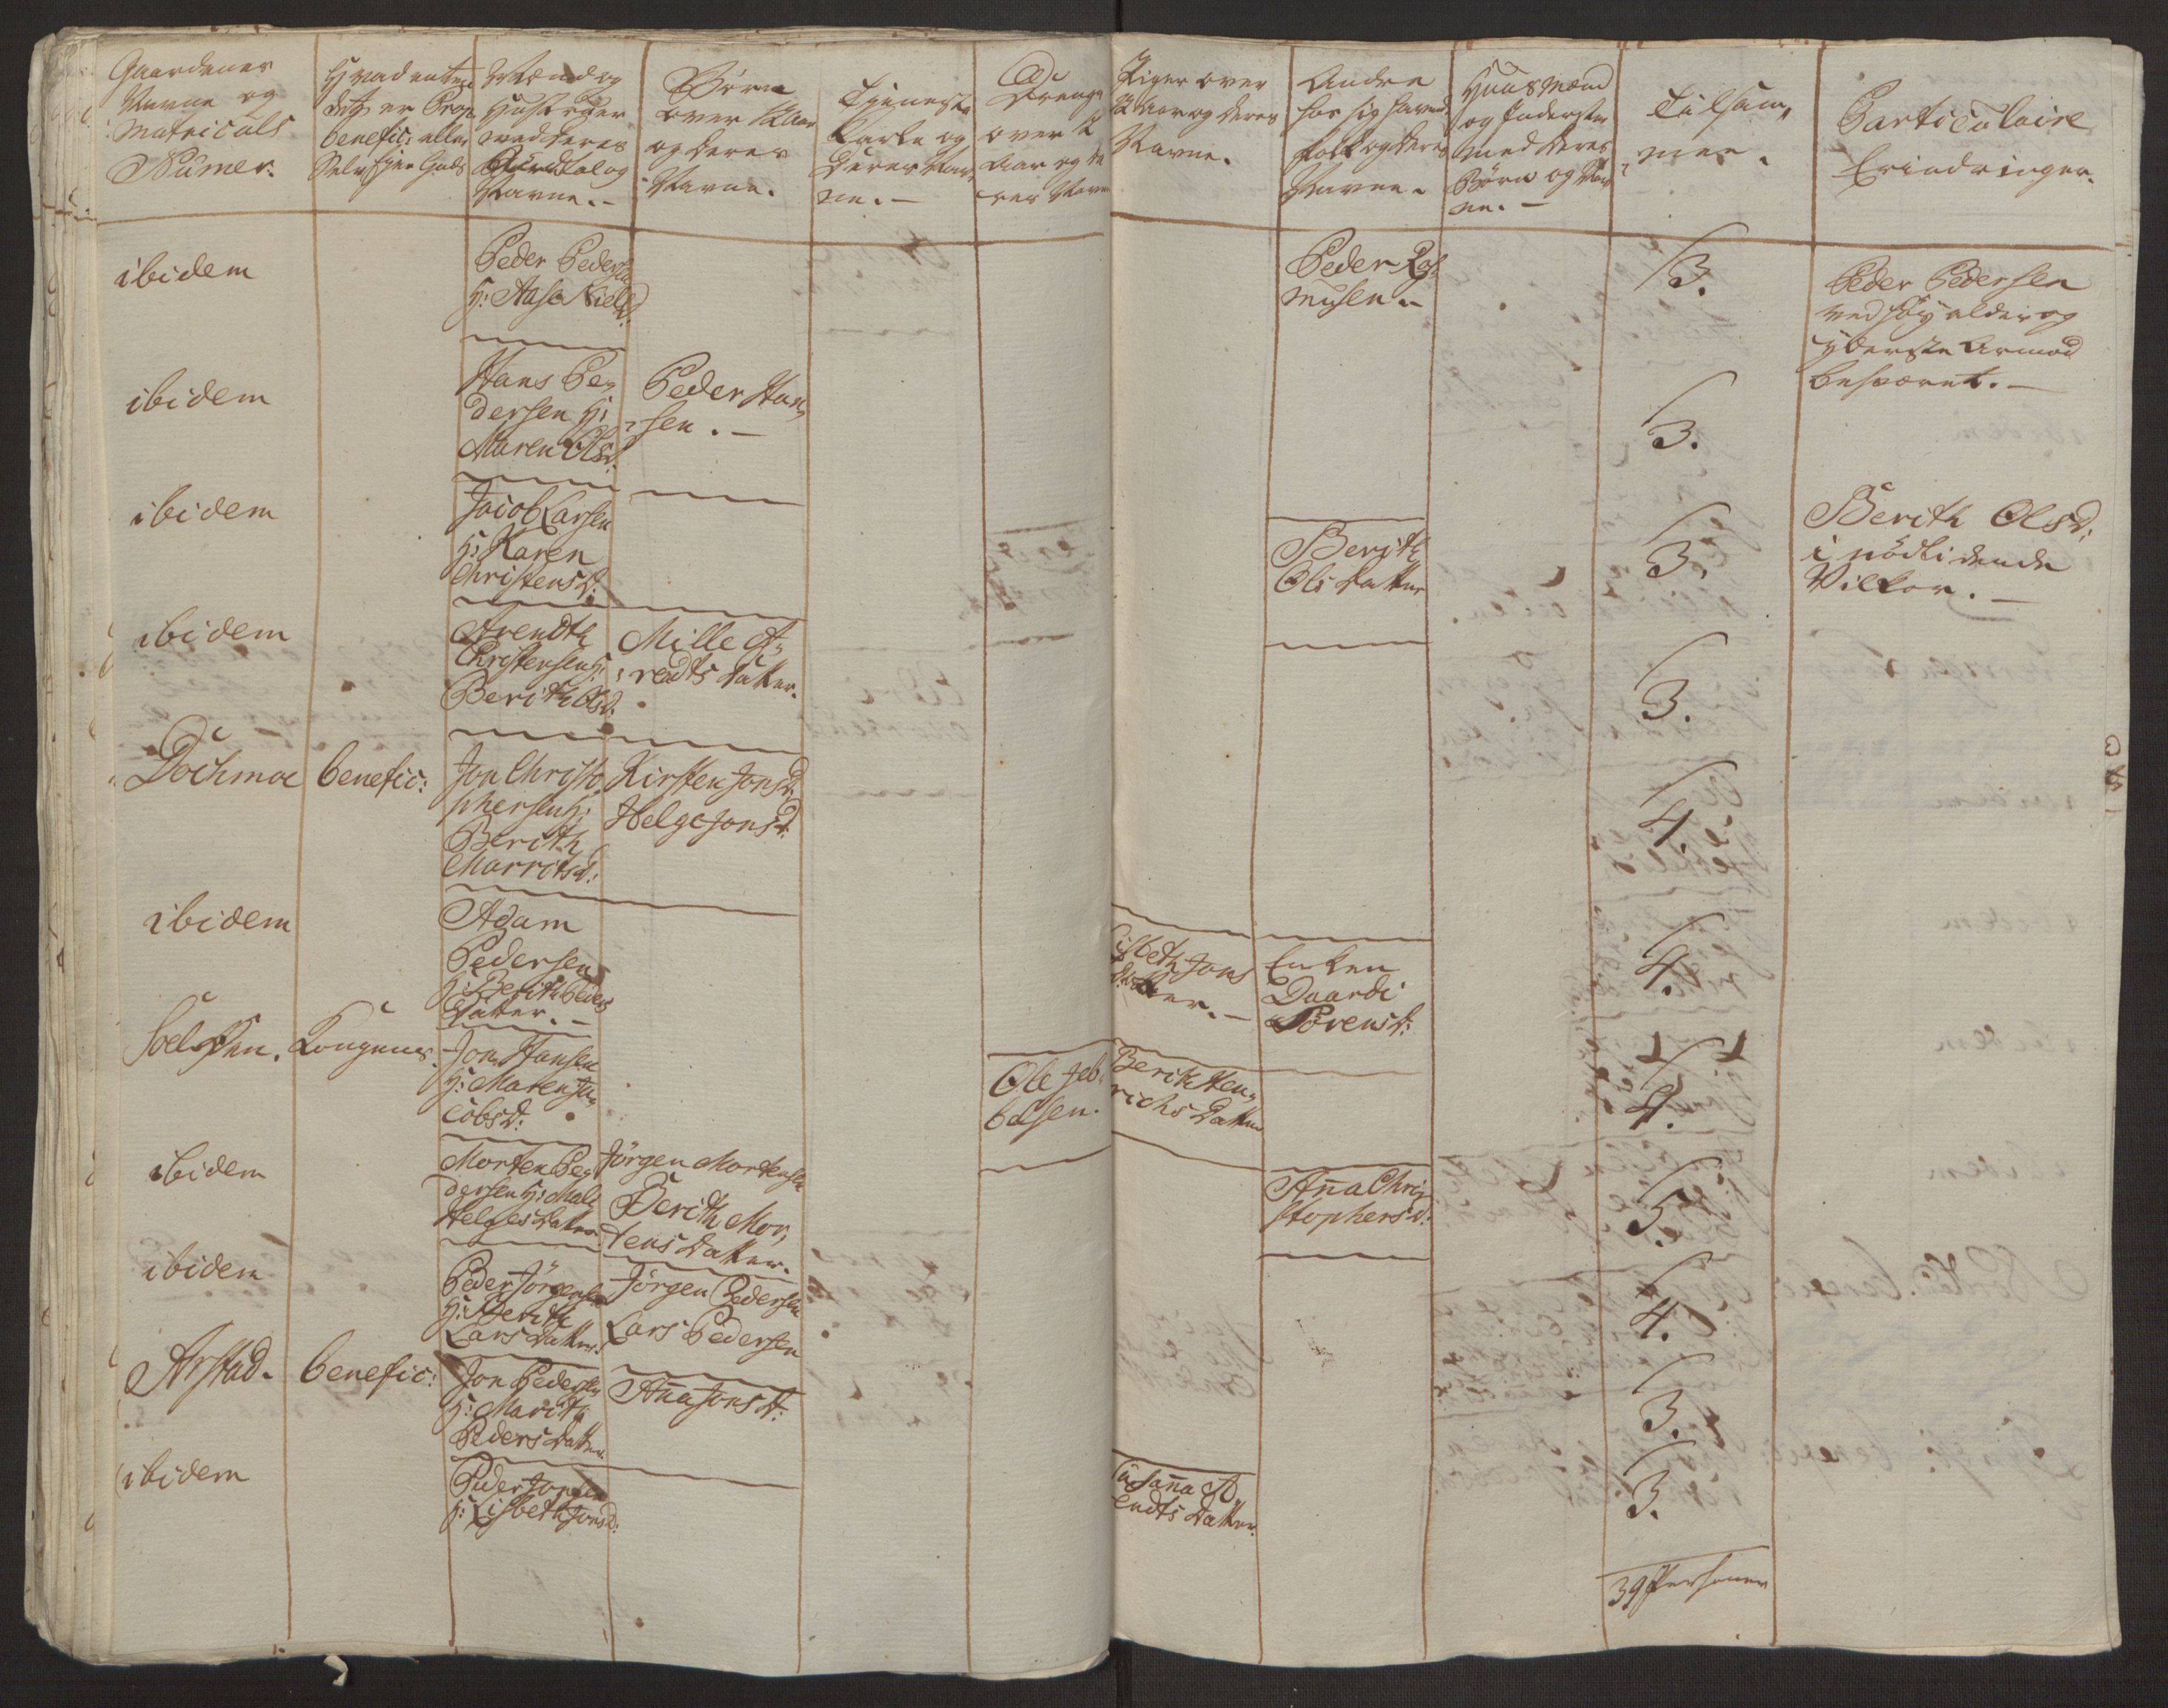 Gaardenes
Navne og
Matriculs
Numer.
Hvad enten
det er Prop:
benefic: eller
Selv Eyer Gods
Mænd og
Hustruer
med deres
Tal og
Navne.-
Børn
over 12 Aar
og deres
Navne.
Tieneste
Karle og
deres Nav,
ne.-
Drenge
over 12
Aar og de
res Navne
Piger over
12 Aar og deres
Navne.
Andre
hos sig havend
folk og deres
Navne.
Huusmænd
og Inderster
med deres
Børn og Nav
ne.-
Tilsam,
men.
Particulaire
Erindringer.
ibidem
Peder Pedersen
H: Aase Nielsd:
Peder Ras
musen.-
3.
Peder Pedersen
ved høy alder og
yderste Armod
besværet.-
ibidem
Hans Pe,
dersen H:
Maren Olsd:
Peder Han,
sen.-
3.
ibidem
Jacob Larsen
H: Karen
Christensd:
Berith
Ols Datter
3.
Berith Olsd:
i nödlidende
Vilkor.-
ibidem
Arendth
Christensen H:
Berith Olsd.
Mille A,
rendts Datter.
3.
Dochmoe
benefic:
Jon Christo
phersen H:
Berith
Marritsd:
Kirsten Jonsd:
Helge Jonsd:
4.
ibidem
Adam
Pedersen
H: Berith Peders
Datter.-
Lisbeth Jons
Datter.-
Enken
Daardi
Sörensd:
4.
Soelsten.
Kongens.
Jon Hansen
H: Maren Ja,
cobsd:
Ole Jeb
belsen.
Berith Hen,
richs Datter
4.
ibidem
Morten Pe,
dersen H: Male
Helges Datter
Jörgen Mortensen
Berith Mor,
tens Datter.
Aña Chri
stophersd:
5.
ibidem
Peder Jörgensen
H: Berith
Lars Datter.
Jörgen Pedersen
Lars Pedersen
4.
Arstad.
benefic:
Jon Pedersen
H: Marith
Peders Datter
Aña Jonsd:
3.
ibidem
Peder Jonsen
H: Lisbeth Jonsd:
Susaña A,
rendts Datter.
3.
39 Personer